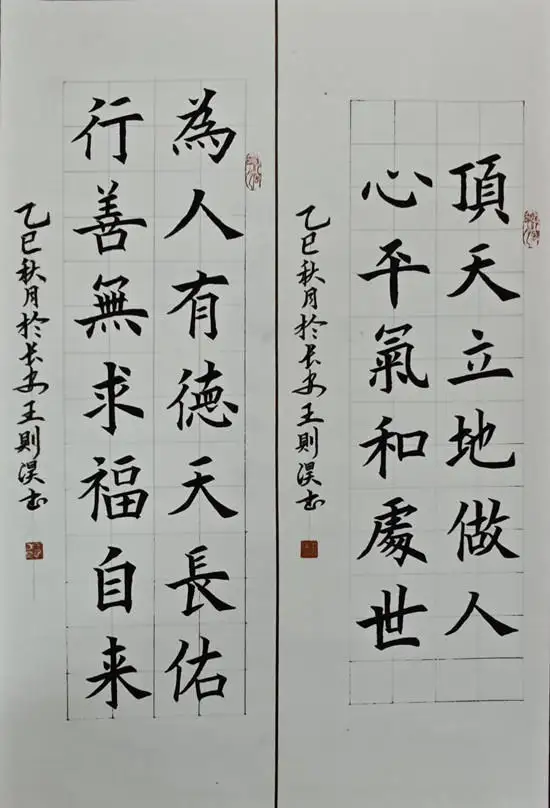 頂天立地做人
心平氣和處世
乙巳秋月於长安王則淏书
為人有德天長佑
行善無求福自来
乙巳秋月於长安王則淏书